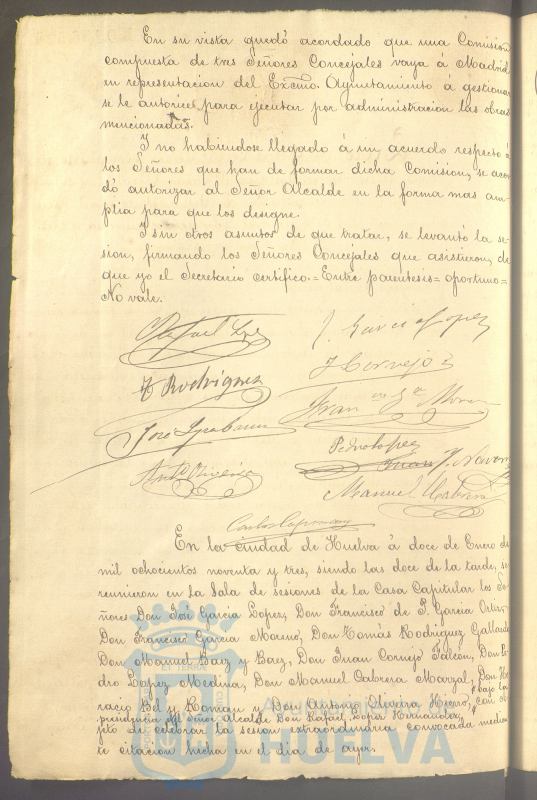 En su vista quedó acordado que una Comision
compuesta de tres Señores Concejales vaya á Madrid
en representacion del Excmo. Ayuntamiento á gestionar
se le autorice para ejecutar por administracion las obras
mencionadas.
Y no habiendose llegado á un acuerdo respecto á
los Señores que han de formar dicha Comision, se acor
dó autorizar al Señor Alcalde en la forma mas am-
plia para que los designe.
Y sin otros asuntos de que tratar, se levantó la se-
sion, firmando los Señores Concejales que asistieron, de
que yo el Secretario certifico.=Entre parentesis=oportuno=
No vale.
Rafael López J. Garcia Lopez
T Rodriguez J Cornejo
Fran co Ga Moreno
José
Pedro Lopez
Anto Oliveira
Manuel Cabrera
Carlos
En la ciudad de Huelva á doce de Enero de
mil ochocientos noventa y tres, siendo las doce de la tarde, se
reunieron en la Sala de sesiones de la Casa Capitular los Se-
ñores Don José Garcia Lopez, Don Francisco de P. Garcia Ortiz,
Don Francisco Garcia Moreno, Don Tomás Rodriguez Gallardo
Don Manuel Baez y Baez, Don Juan Cornejo Falcón, Don Pe
dro Lopez Medina, Don Manuel Cabrera Marzal, Don Ho
racio Bel y Roman y Don Antonio Oliveira Hierro, bajo la
presidencia del Señor Alcalde Don Rafael Lopez Hernandez, con ob
jeto de celebrar la sesion extraordinaria convocada median
te citacion hecha en el dia de ayer.
HUELVA